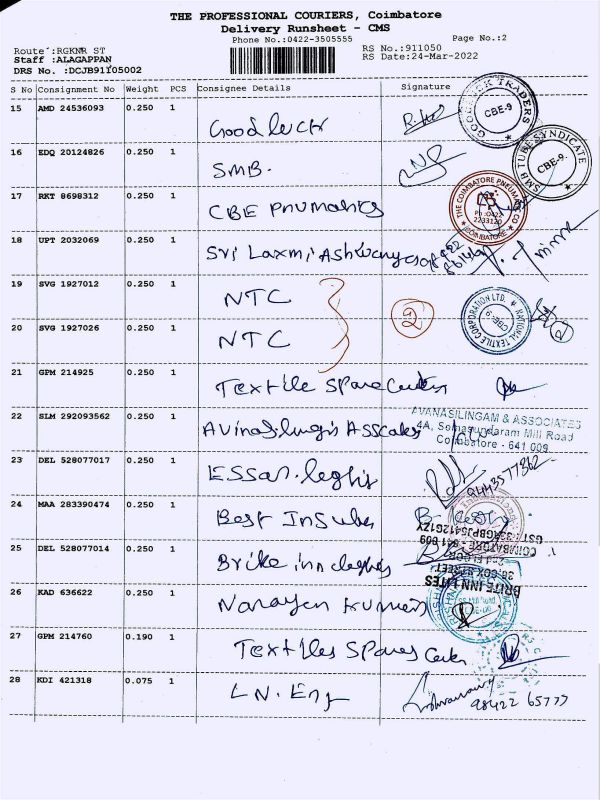 THE PROFESSIONAL COURIERS, Coimbatore
Delivery Runsheet - CMS
Phone No.:0422-3505555
Page No.:2
Route :RGKNR ST
RS No.:911050
Staff :ALAGAPPAN
RS Date:24-Mar-2022
DRS No. :DCJB91105002
S No Consignment No Weight PCS Consignee Details Signature
15 AMD 24536093 0.250 1
Good luck
GOODLUCK TRADERS CBE-9
16 EDQ 20124826 0.250 1
SMB.
SMB TUBE SYNDICATE CBE-9.
17 RKT 8698312 0.250 1
CBE Pnumatics
THE COIMBATORE PNEUMATIC CO
Ph:0422
2233120
COIMBATORE
18 UPT 2032069 0.250 1
Sri Laxmi
19 SVG 1927012 0.250 1
NTC
2
NATIONAL TEXTILE CORPORATION LTD. CBE-9
20 SVG 1927026 0.250 1
NTC
21 GPM 214925 0.250 1
Textile Spare
22 SLM 292093562 0.250 1
AVANASILINGAM & ASSOCIATES
4A, Somasundaram Mill Road
Coimbatore - 641 009
23 DEL 528077017 0.250 1
Essar.
24 MAA 283390474 0.250 1
Best
25 DEL 528077014 0.250 1
Brike inn
BRITE INN LITES
38, COX STREET
2nd FLOOR
COIMBATORE - 641 009
26 KAD 636622 0.250 1
Narayan Kumar
27 GPM 214760 0.190 1
Textiles Spares
28 KDI 421318 0.075 1
L.N. Eng
98422 65777